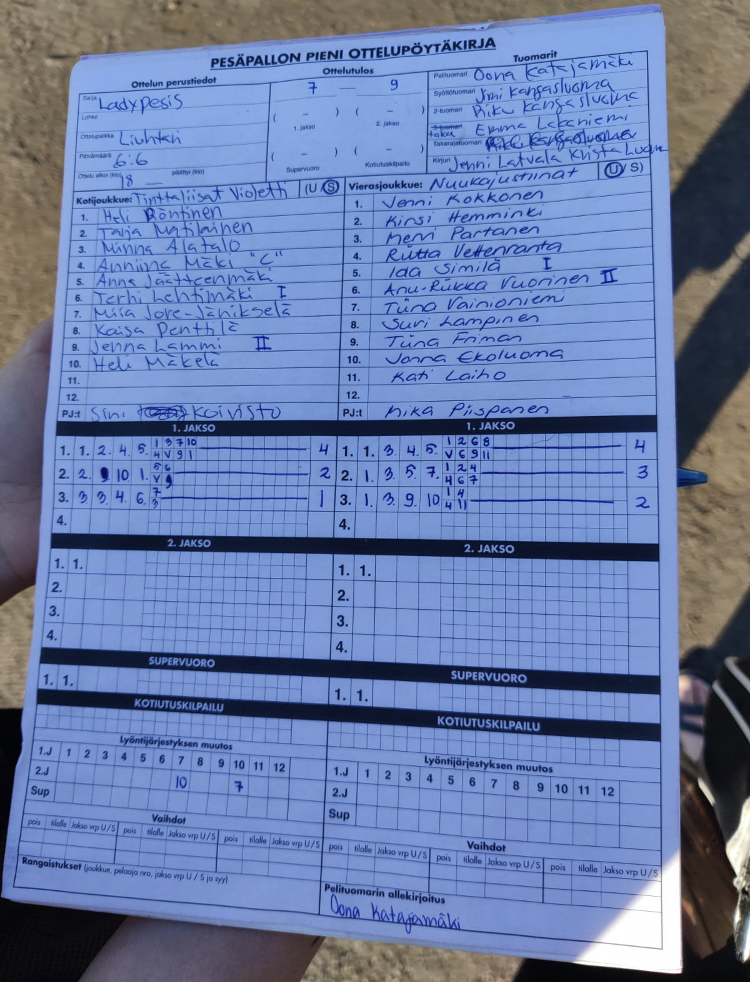 PESÄPALLON PIENI OTTELUPÖYTÄKIRJA
Ottelun perustiedot
Sarja Ladypesis
Lohko
Ottelupaikka Liuhtari
Päivämäärä 6.6
Ottelu alkoi (klo) 18 — päättyi (klo)
Ottelutulos
7 — 9
( – ) ( – )
1. jakso 2. jakso
( – ) ( – )
Supervuoro Kotiutuskilpailu
Tuomarit
Pelituomari Oona Katajamäki
Syöttötuomari Jmi Kangasluoma
2-tuomari Riku Kangasluoma
3-tuomari taka Emma Lakaniemi
Takarajatuomari
Kirjuri Jenni Latvala Krista Luoma
Kotijoukkue: Tinttaliisat Violetti (U/S)
1. Heli Röntinen
2. Tarja Matilainen
3. Minna Alatalo
4. Anniina Mäki "C"
5. Anna Jäätteenmäki
6. Terhi Lehtimäki I
7. Miia Jore-Jänikselä
8. Kaisa Penttilä
9. Jenna Lammi II
10. Heli Mäkelä
11.
12.
PJ:t Sini Koivisto
Vierasjoukkue: Nuukajustiinat (U/S)
1. Jenni Kokkonen
2. Kirsi Hemminki
3. Mervi Partanen
4. Riitta Vettenranta
5. Ida Similä I
6. Anu-Riikka Vuorinen II
7. Tiina Vainioniemi
8. Suvi Lampinen
9. Tiina Friman
10. Jonna Ekoluoma
11. Kati Laiho
12.
PJ:t Mika Piispanen
1. JAKSO
1. 1. 2. 4. 5. 1 3 7 10 4
4 V 9 1
2. 2. 10 1. 5 6 2
V 9
3. 3 3. 4. 6. 7 1
3
4.
1. JAKSO
1. 1. 3. 4. 5. 1 2 6 8 4
V 6 9 11
2. 1. 3. 5. 7. 1 2 4 3
4 6 7
3. 1. 3. 9. 10 1 4 2
4 11
4.
2. JAKSO
1. 1.
2.
3.
4.
2. JAKSO
1. 1.
2.
3.
4.
SUPERVUORO
1. 1.
SUPERVUORO
1. 1.
KOTIUTUSKILPAILU
KOTIUTUSKILPAILU
Lyöntijärjestyksen muutos
1.J 1 2 3 4 5 6 7 8 9 10 11 12
2.J 10 7
Sup
Lyöntijärjestyksen muutos
1.J 1 2 3 4 5 6 7 8 9 10 11 12
2.J
Sup
Vaihdot
pois tilalle Jakso vrp U/S pois tilalle Jakso vrp U/S pois tilalle Jakso vrp U/S
Vaihdot
pois tilalle Jakso vrp U/S pois tilalle Jakso vrp U/S pois tilalle Jakso vrp U/S
Rangaistukset (joukkue, pelaaja nro, jakso vrp U / S ja syy)
Pelituomarin allekirjoitus
Oona Katajamäki